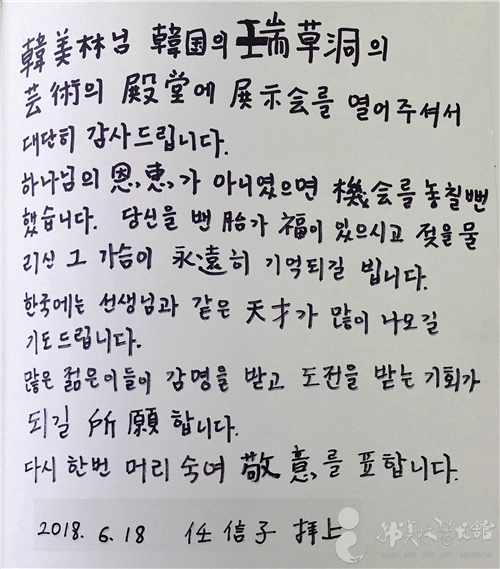 韓美林님 韓国의 瑞草洞의
芸術의 殿堂에 展示会를 열어주셔서
대단히 감사드립니다.
하나님의 恩惠가 아니였으면 機会를 놓칠뻔
했습니다. 당신을 밴 胎가 福이 있으시고 젖을 물
리신 그 가슴이 永遠히 기억되길 빕니다.
한국에는 선생님과 같은 天才가 많이 나오길
기도드립니다.
많은 젊은이들이 감명을 받고 도전을 받는 기회가
되길 所願합니다.
다시 한번 머리 숙여 敬意를 표합니다.
2018. 6.18 任信子 拜上